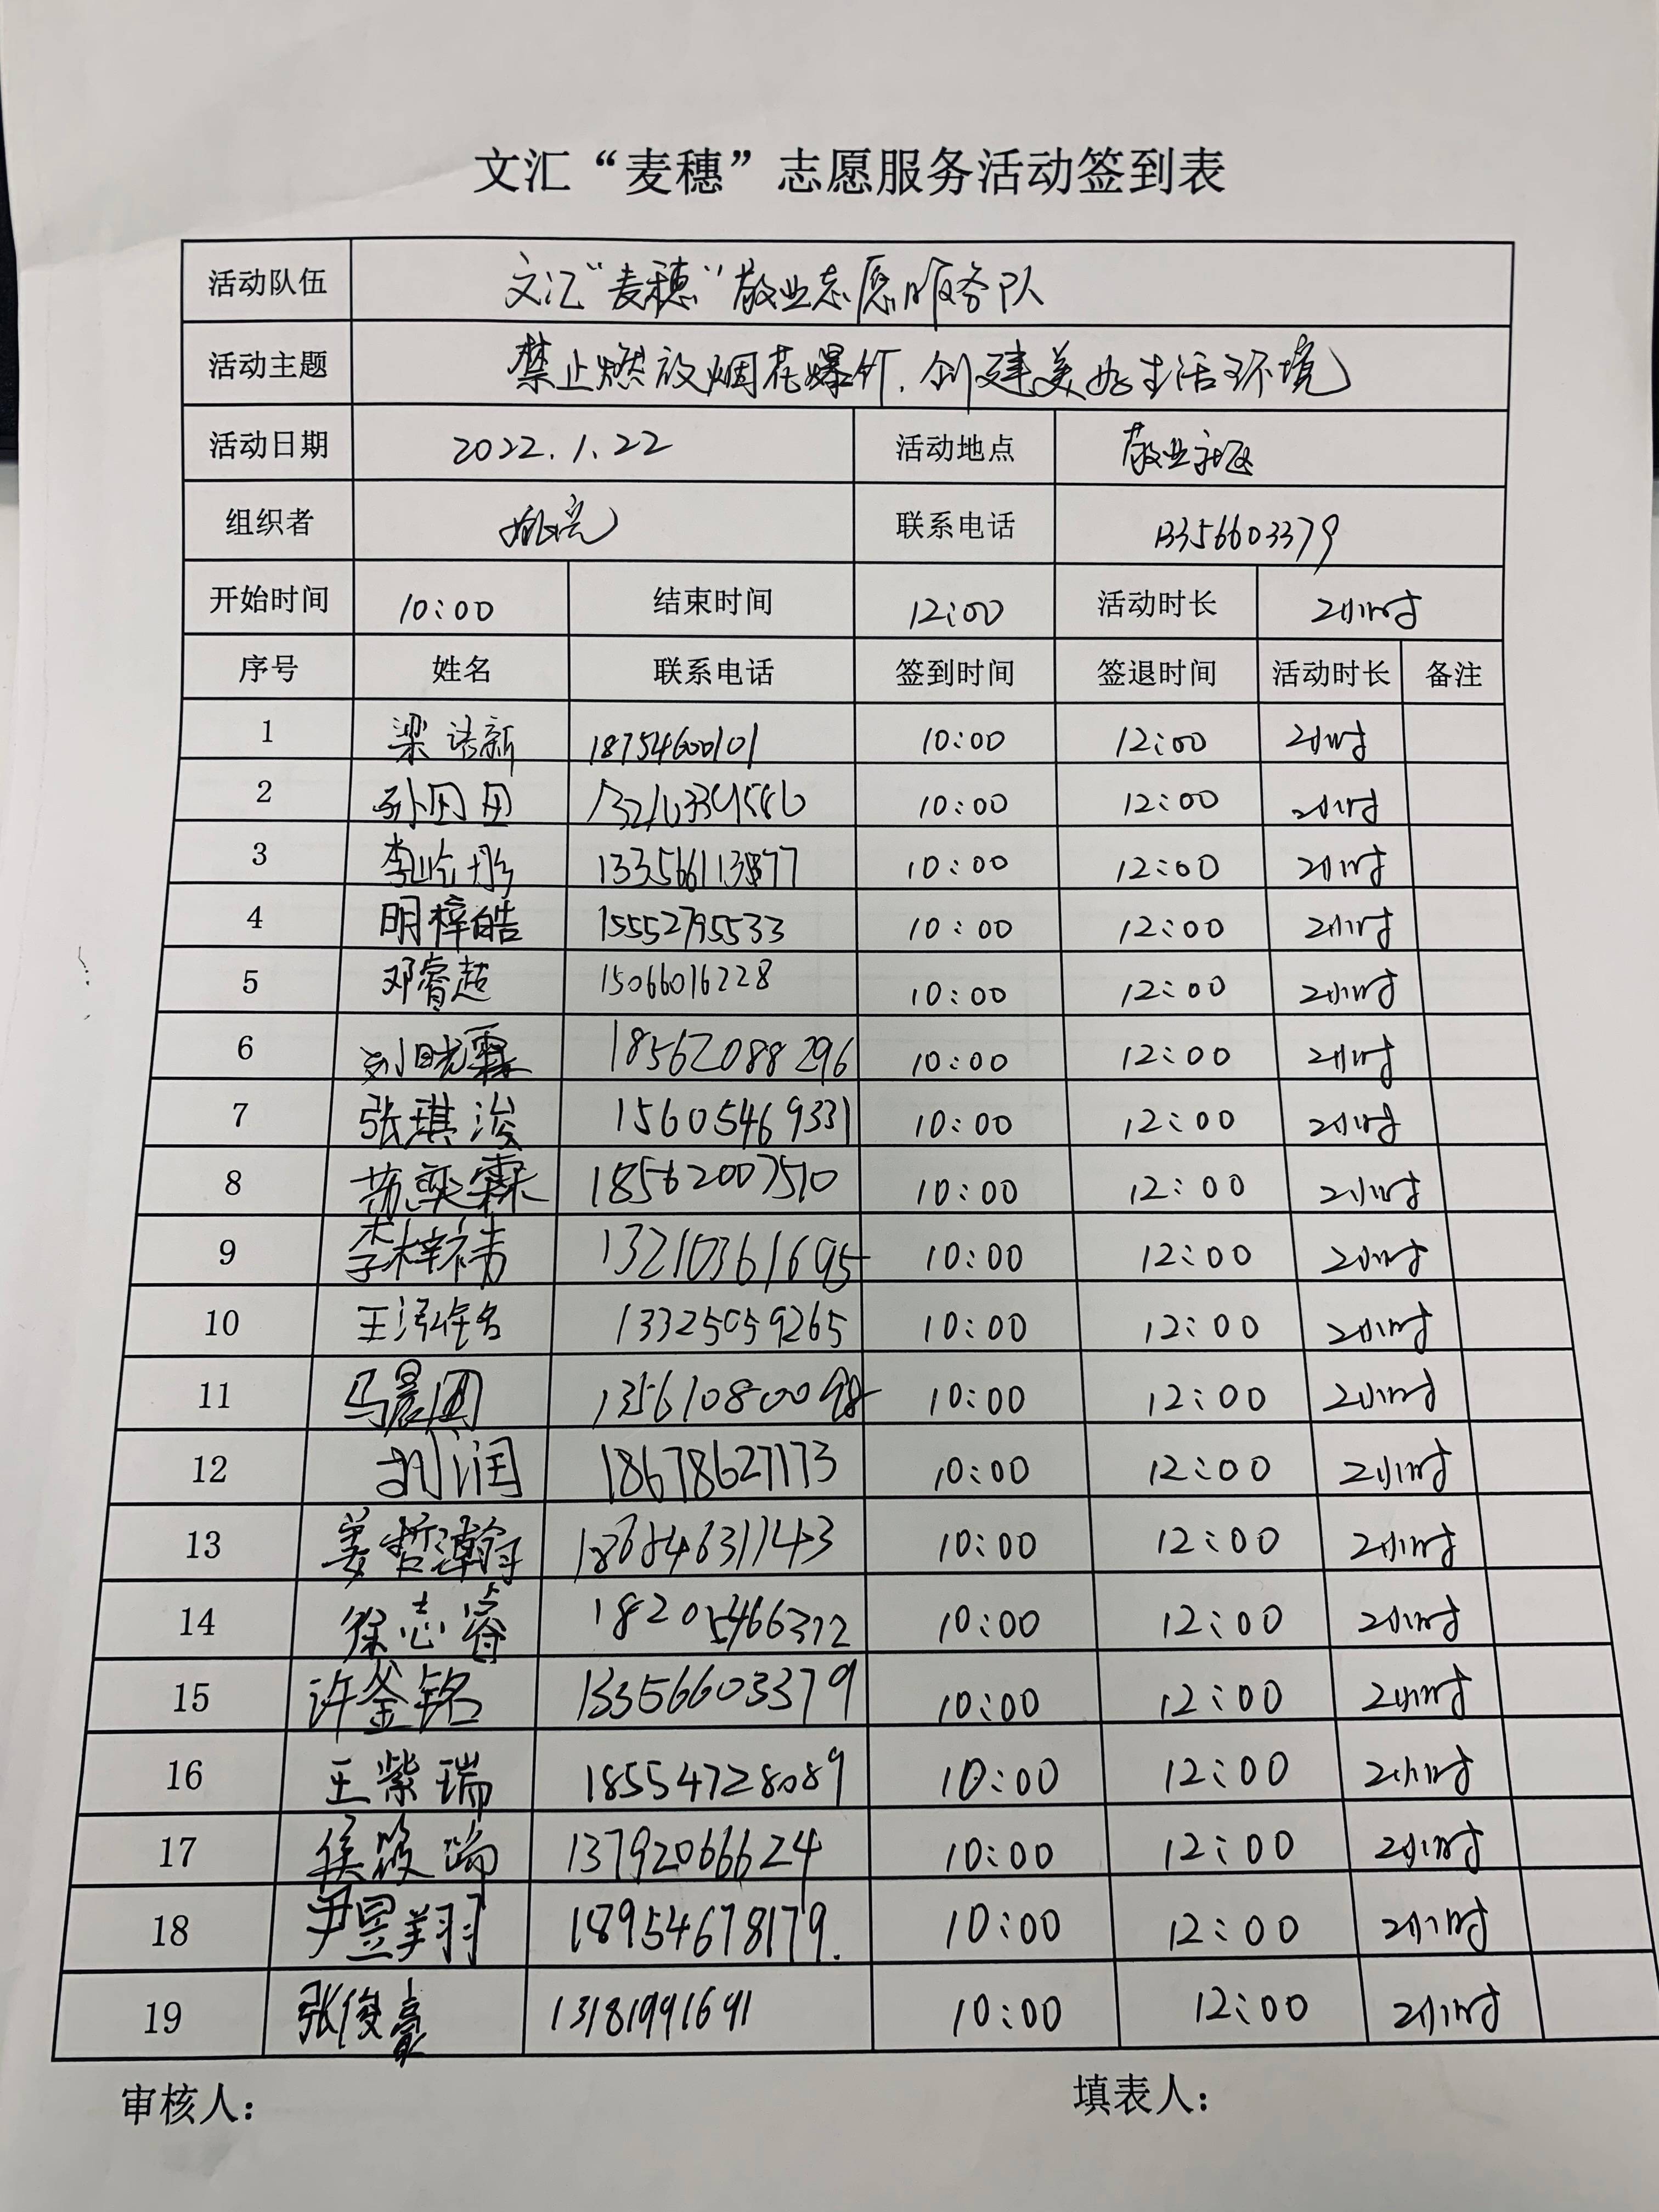 文汇“麦穗”志愿服务活动签到表
活动队伍 文汇“麦穗”敬业志愿服务队
活动主题 禁止燃放烟花爆竹，创建美好生活环境
活动日期 2022.1.22 活动地点 敬业社区
组织者 联系电话 13356603379
开始时间 10:00 结束时间 12:00 活动时长 2小时
序号 姓名 联系电话 签到时间 签退时间 活动时长 备注
1 梁语新 18754600101 10:00 12:00 2小时
2 10:00 12:00 2小时
3 10:00 12:00 2小时
4 明梓皓 15552795533 10:00 12:00 2小时
5 邓睿超 15066016228 10:00 12:00 2小时
6 刘晓霖 18562088296 10:00 12:00 2小时
7 张琪浚 15605469331 10:00 12:00 2小时
8 苑奕霖 18562007510 10:00 12:00 2小时
9 李梓祎 13210361695 10:00 12:00 2小时
10 13325059265 10:00 12:00 2小时
11 10:00 12:00 2小时
12 刘润 18678627173 10:00 12:00 2小时
13 姜哲瀚 10:00 12:00 2小时
14 徐志睿 18205466372 10:00 12:00 2小时
15 许釜铭 13356603379 10:00 12:00 2小时
16 王紫瑞 18554728089 10:00 12:00 2小时
17 侯筱端 13792066624 10:00 12:00 2小时
18 尹昱翔 18954678179. 10:00 12:00 2小时
19 张俊豪 13181991691 10:00 12:00 2小时
审核人： 填表人：